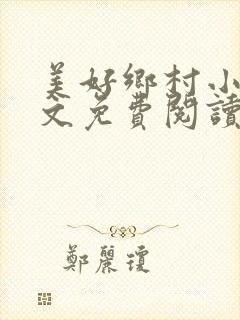 美好鄉村小
文免費閱讀
鄭麗瓊